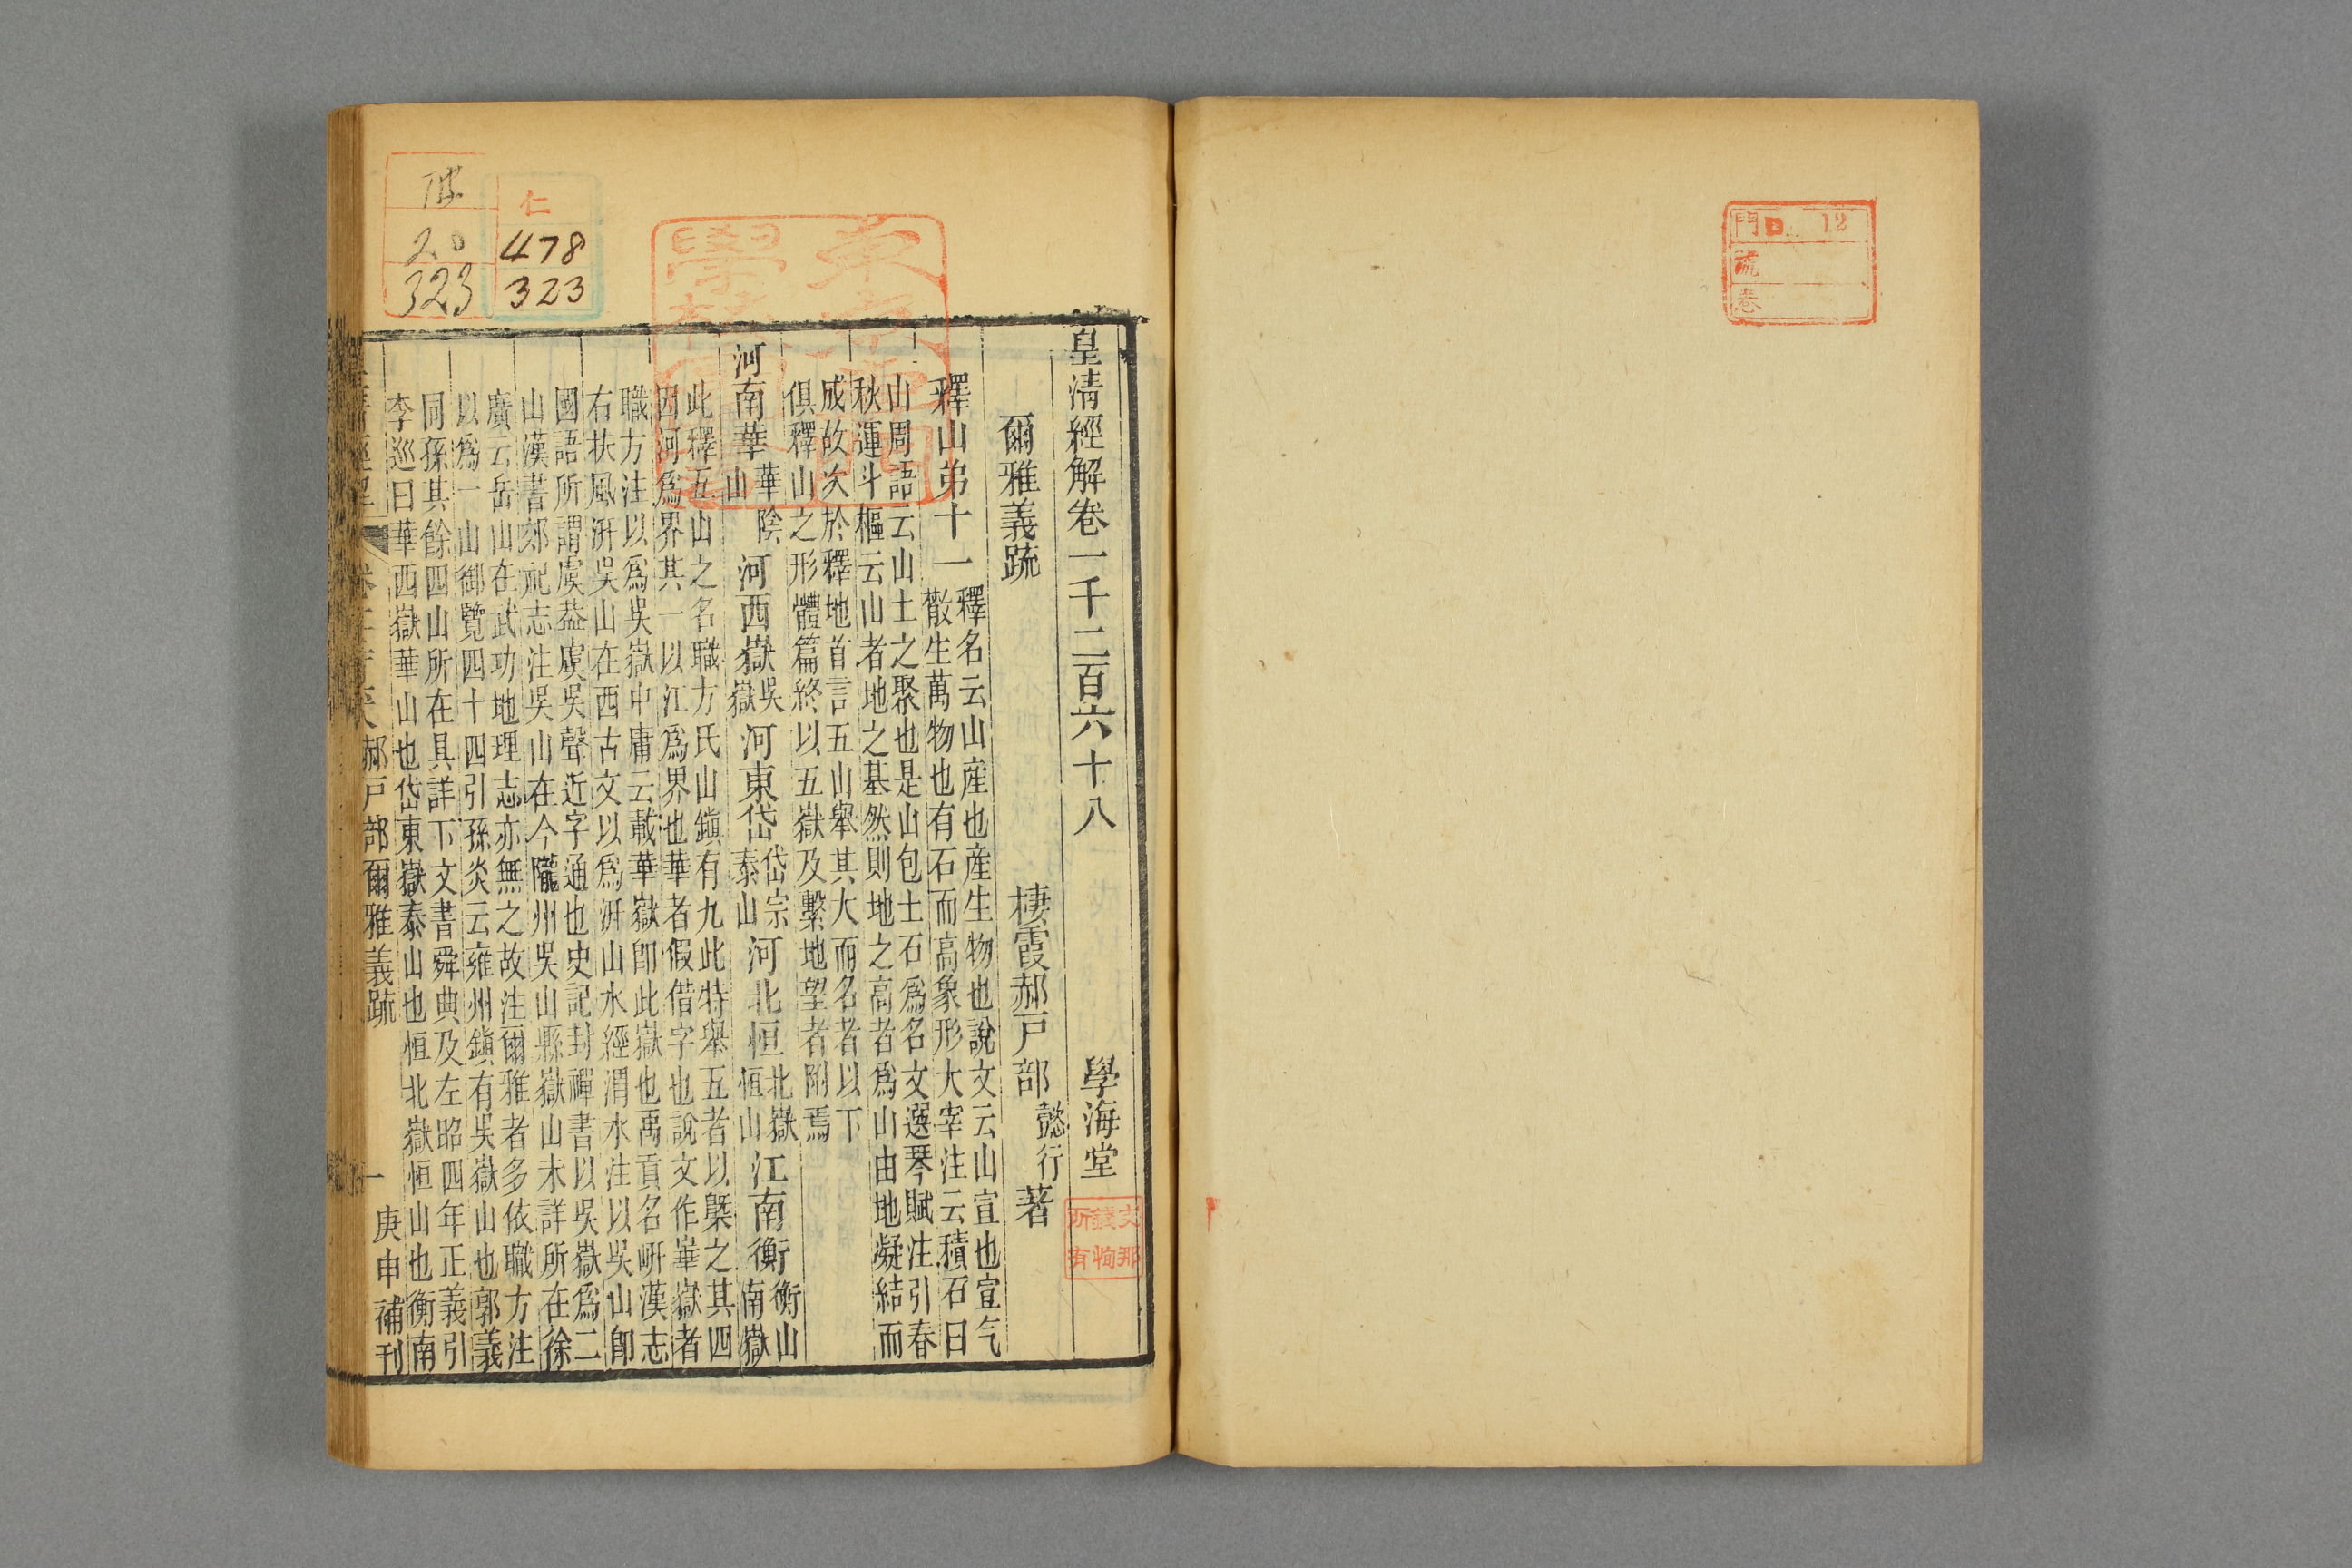 門 12
號
卷
皇清經解卷一千二百六十八 學海堂
爾雅義疏 棲霞郝戶部懿行著
釋山弟十一
釋名云山産也産生物也說文云山宣也宣气
散生萬物也有石而高象形大宰注云積石曰
山周語云山土之聚也是山包土石爲名文選琴賦注引春
秋運斗樞云山者地之基然則地之高者爲山由地凝結而
成故次於釋地首言五山舉其大而名者以下
俱釋山之形體篇終以五嶽及繫地望者附焉
河南華
華陰
山
河西嶽
吳
嶽
河東岱
岱宗
泰山
河北恒
北嶽
恒山
江南衡
衡山
南嶽
此釋五山之名職方氏山鎭有九此特舉五者以槩之其四
因河爲界其一以江爲界也華者假借字也說文作崋嶽者
職方注以爲吳嶽中庸云載華嶽卽此嶽也禹貢名岍漢志
右扶風汧吳山在西古文以爲汧山水經渭水注以吳山卽
國語所謂虞葢虞吳聲近字通也史記封禪書以吳嶽爲二
山漢書郊祀志注吳山在今隴州吳山縣嶽山未詳所在徐
廣云岳山在武功地理志亦無之故注爾雅者多依職方注
以爲一山御覽四十四引孫炎云雍州鎭有吳嶽山也郭義
同孫其餘四山所在具詳下文書舜典及左昭四年正義引
李巡曰華西嶽華山也岱東嶽泰山也恒北嶽恒山也衡南
郝戶部爾雅義疏
一
庚申補刊
仁
478
323
20
323